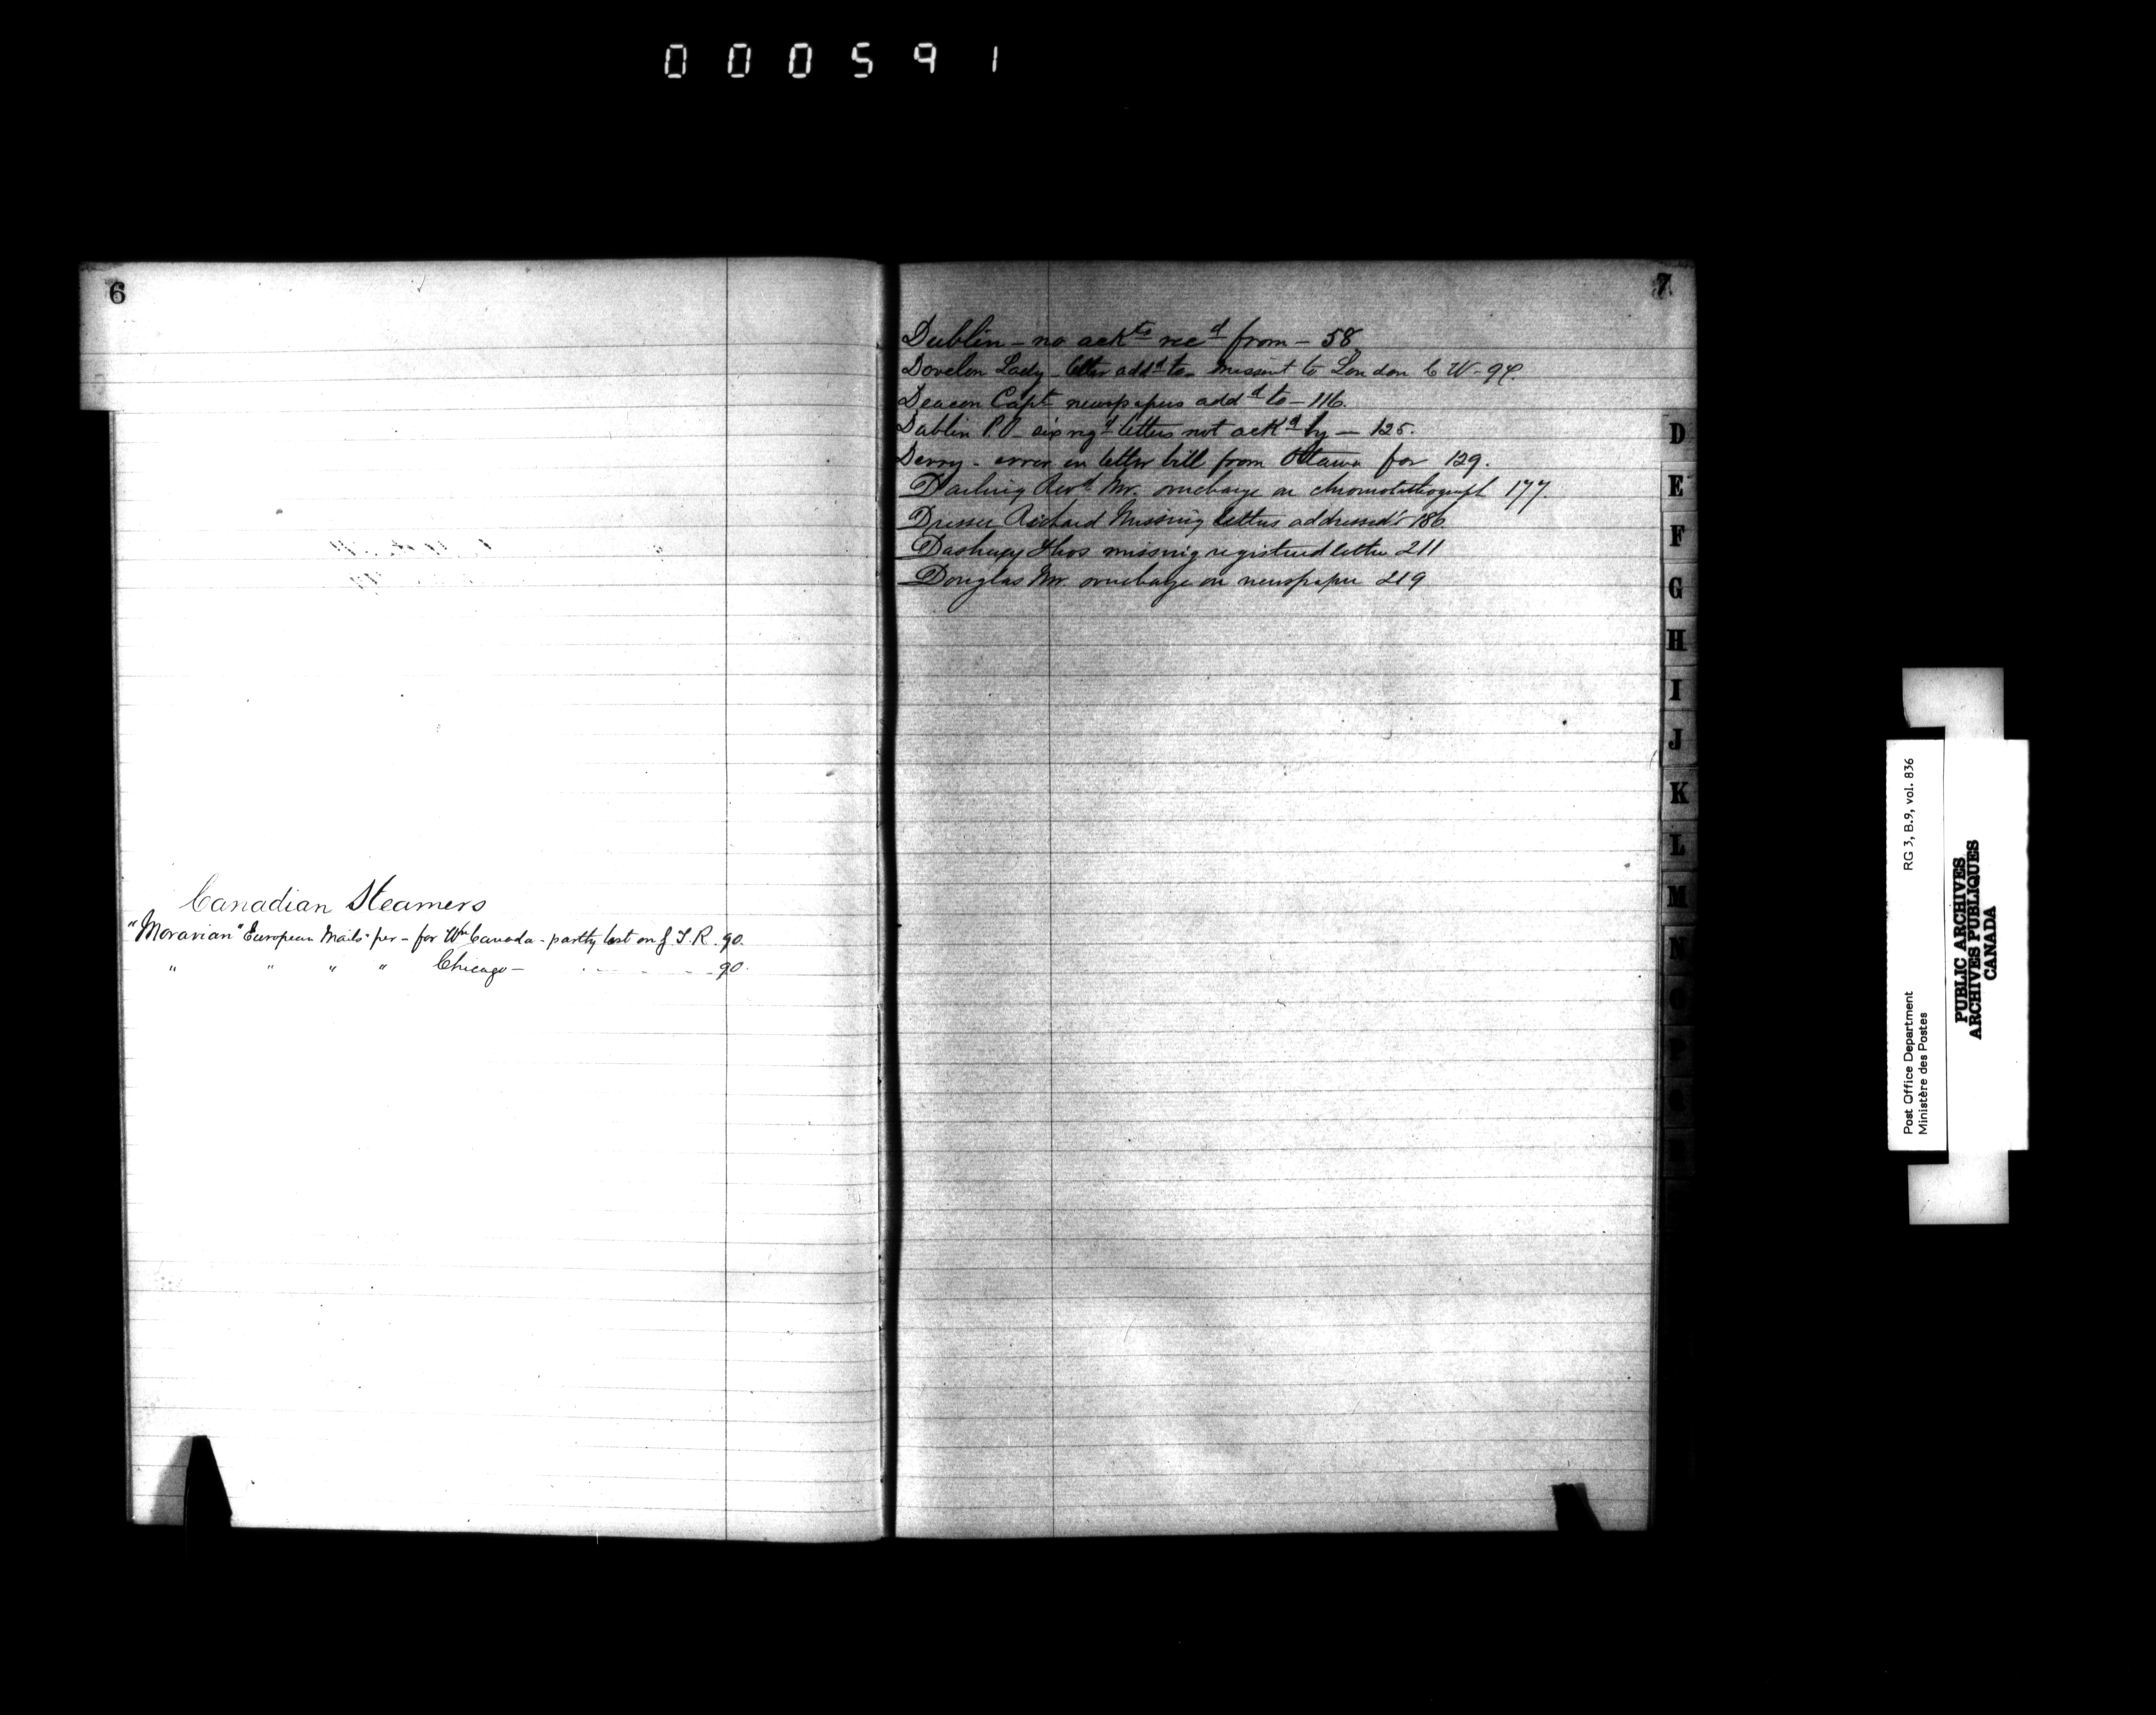 000591
6
Canadian Steamers
"Moravian" European Mails per - for Wn Canada - partly lost on G.T.R. 90.
" " " " Chicago - - - - - 90.
7
Dublin - no ackts recd from - 58
Lady - letter addd to - missent to London C W -
Deacon Capt newspapers addd to - 116.
Dublin P.O - six regd letters not ackd by - 125.
Derry - error in letter bill from Ottawa for 129.
Darling Revd Mr. overcharge on chromolithograph 177.
Dresser Richard Missing letters addressed to 186
Thos missing registered letter 211
Douglas Mr. overcharge on newspaper 219
D
E
F
G
H
I
J
K
L
M
N
RG 3, B.9, vol. 836
Post Office Department
Ministère des Postes
PUBLIC ARCHIVES
ARCHIVES PUBLIQUES
CANADA